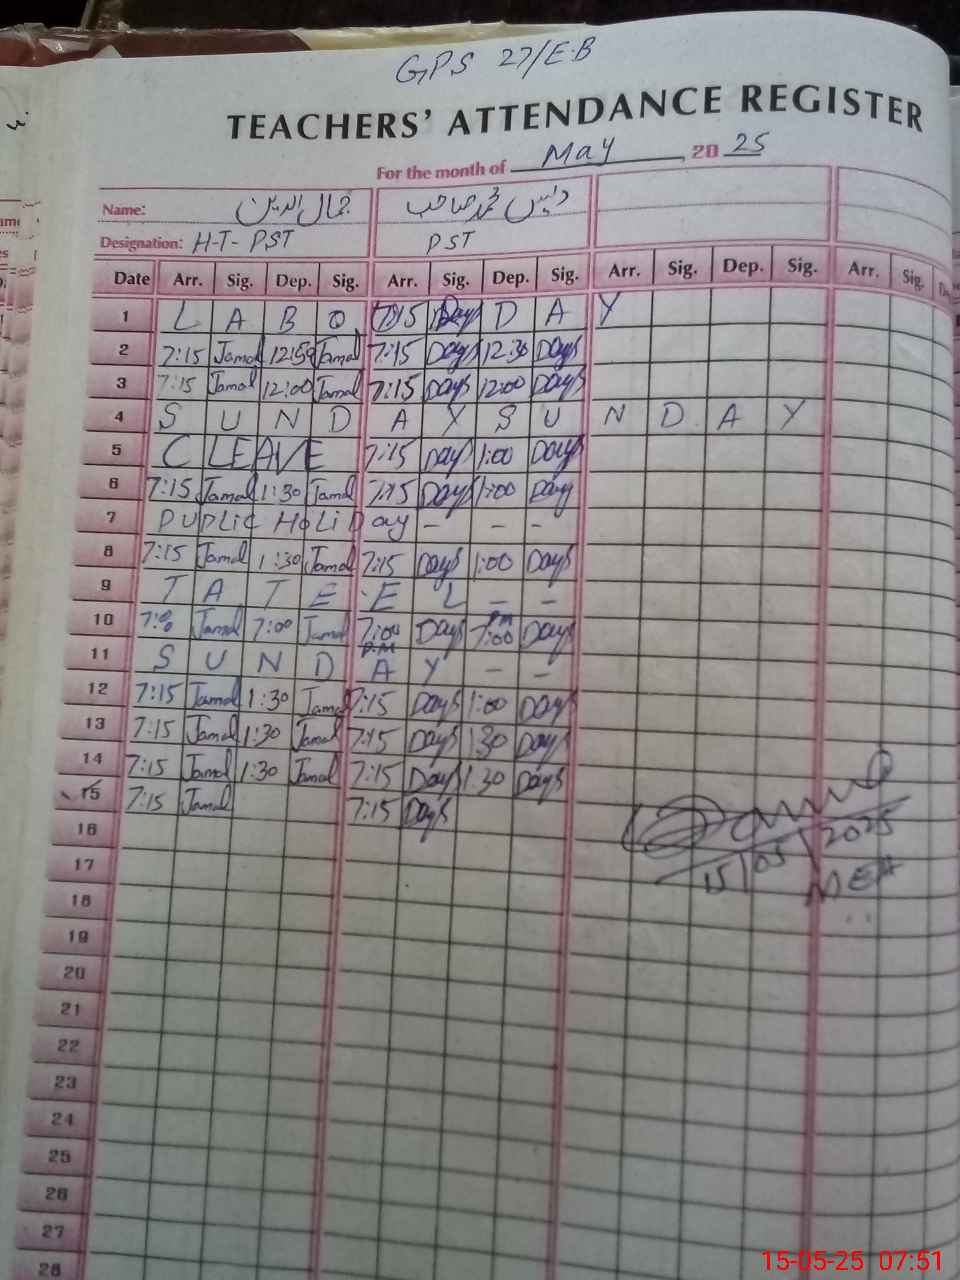 GPS 27/E·B
TEACHERS' ATTENDANCE REGISTER
For the month of May 2025
Name: جمال الدین محمد صاحب
Designation: H-T- PST PST
Date Arr. Sig. Dep. Sig. Arr. Sig. Dep. Sig. Arr. Sig. Dep. Sig. Arr. Sig.
1 L A B O 7:15 Days D A Y
2 7:15 Jamal Jamal 7:15 Days 12:30 Days
3 7:15 Jamal 12:00 Jamal 7:15 Days 12:00 Days
4 S U N D A Y S U N D A Y
5 C LEAVE 7:15 Days 1:00 Days
6 7:15 Jamal 1:30 Jamal 7:15 Days 1:00 Days
7 PUBLIC HoLiDay - - -
8 7:15 Jamal 1:30 Jamal 7:15 Days 1:00 Days
9 T A T E E L - -
10 Jamal 7:00 Jamal 7:00 P.M Days 7:00 Days
11 S U N D A Y - -
12 7:15 Jamal 1:30 Jamal 7:15 Days 1:00 Days
13 7:15 Jamal 1:30 Jamal 7:15 Days 1:30 Days
14 7:15 Jamal 1:30 Jamal 7:15 Days 1:30 Days
15 7:15 Jamal 7:15 Days
16
15/05/2025
17
MEA
18
19
20
21
22
23
24
25
26
27
28
15-05-25 07:51